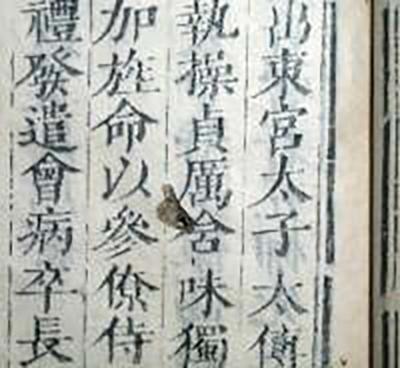 出東宮太子太傅
執操貞厲含味獨
加旌命以參僚侍
禮發遣會病卒長